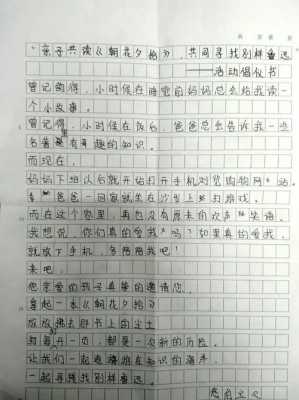 "亲子共读《朝花夕拾》,共同寻找别样鲁迅
——活动倡议书
曾记的得,小时候在睡觉前妈妈总会给我读一
个小故事。
曾记得,小时候在饭后,爸爸总会告诉我一些
名著里有趣的知识。
而现在,
妈妈下班以后就开始打开手机浏览购物网站,
爸爸一回家就坐在沙发上打游戏。
而在这个家里,再也没有原来的欢声笑语。
我想说,你们真的爱我吗?如果真的爱我,
就放下手机,多陪陪我吧!
来吧,
您亲爱的孩子真挚的邀请您,
拿起一本《朝花夕拾》
放放拂去那书上的尘土
每翻开一页,都是一次新的历险。
让我们一起遨游在知识的海洋
一起寻找别样鲁迅。